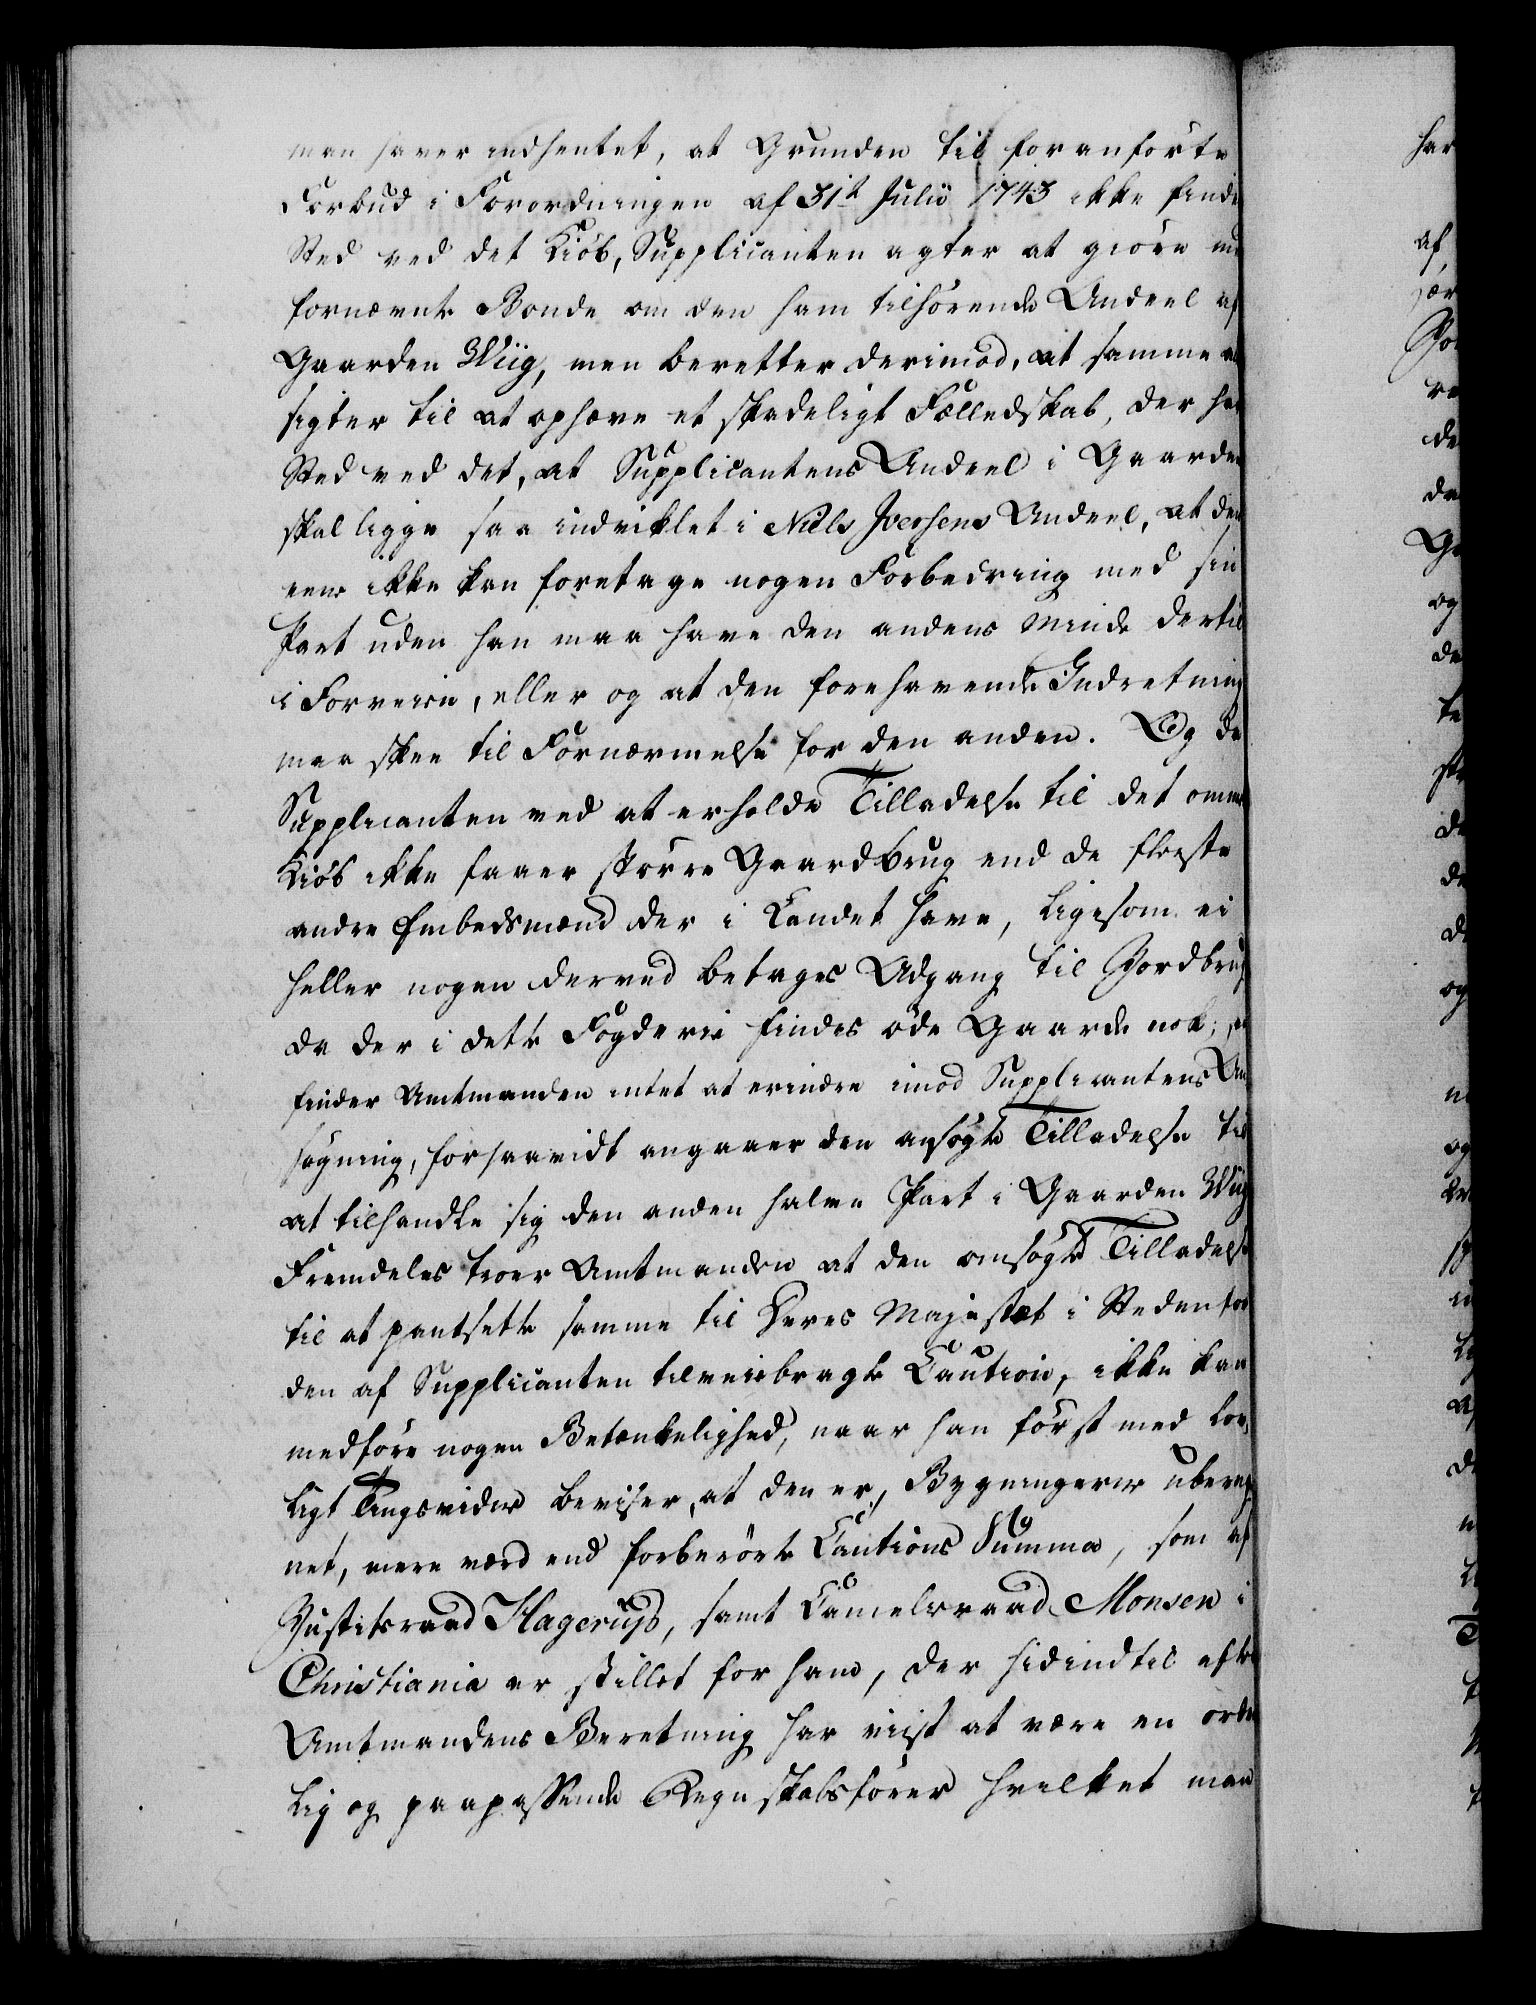 man haver indhentet, at Grunden til foranförte
Forbud i Forordningen af 31te Julii 1743 ikke finde
Sted ved det Kiöb, Supplicanten agter at giöre med
fornævnte Bonde om den ham tilhörende Andeel af
Gaarden Wiig, men beretter derimod, at samme
sigter til at ophæve et skadeligt Fælledskab, der har
Sted ved det, at Supplicantens Andeel i Gaarden
skal ligge saa indviklet i Niels Iversens Andeel, at den
eene ikke kan foretage nogen Forbedring med sin
Part uden han maa have den andens Minde dertil
i Forveien, eller og at den forehavende Indretning
maa skee til Fornærmelse for den anden. Og da
Supplicanten ved at erholde Tilladelse til det
Kiöb ikke faaer större Gaardbrug end de fleeste
andre Embedsmænd der i Landet have, ligesom ei
heller nogen derved betages Adgang til Jordbrug
da der i dette Fogderie findes öde Gaarde nok;
finder Amtmanden intet at erindre imod Supplicantens An
sögning, forsaavidt angaaer den ansögte Tilladelse til
at tilhandle sig den anden halve Part i Gaarden Wiig
Fremdeles troer Amtmanden at den ansögte Tilladelse
til at pantsette samme til Deres Majestæt i Steden for
den af Supplicanten tilveiebragte Caution, ikke kan
medföre nogen Betænkelighed, naar han först med lov,
ligt Tingsvidne beviser, at den er, Bygningerne ubereg
net, mere værd end forberörte Cautions Summa, som af
Justitsraad Hagerups, samt Cancelieraad Monsen i
Christiania er stillet for ham, der hidindtil efter
Amtmandens Beretning har viist at være en ordent
lig og paapassende Regnskabsförer hvilket man